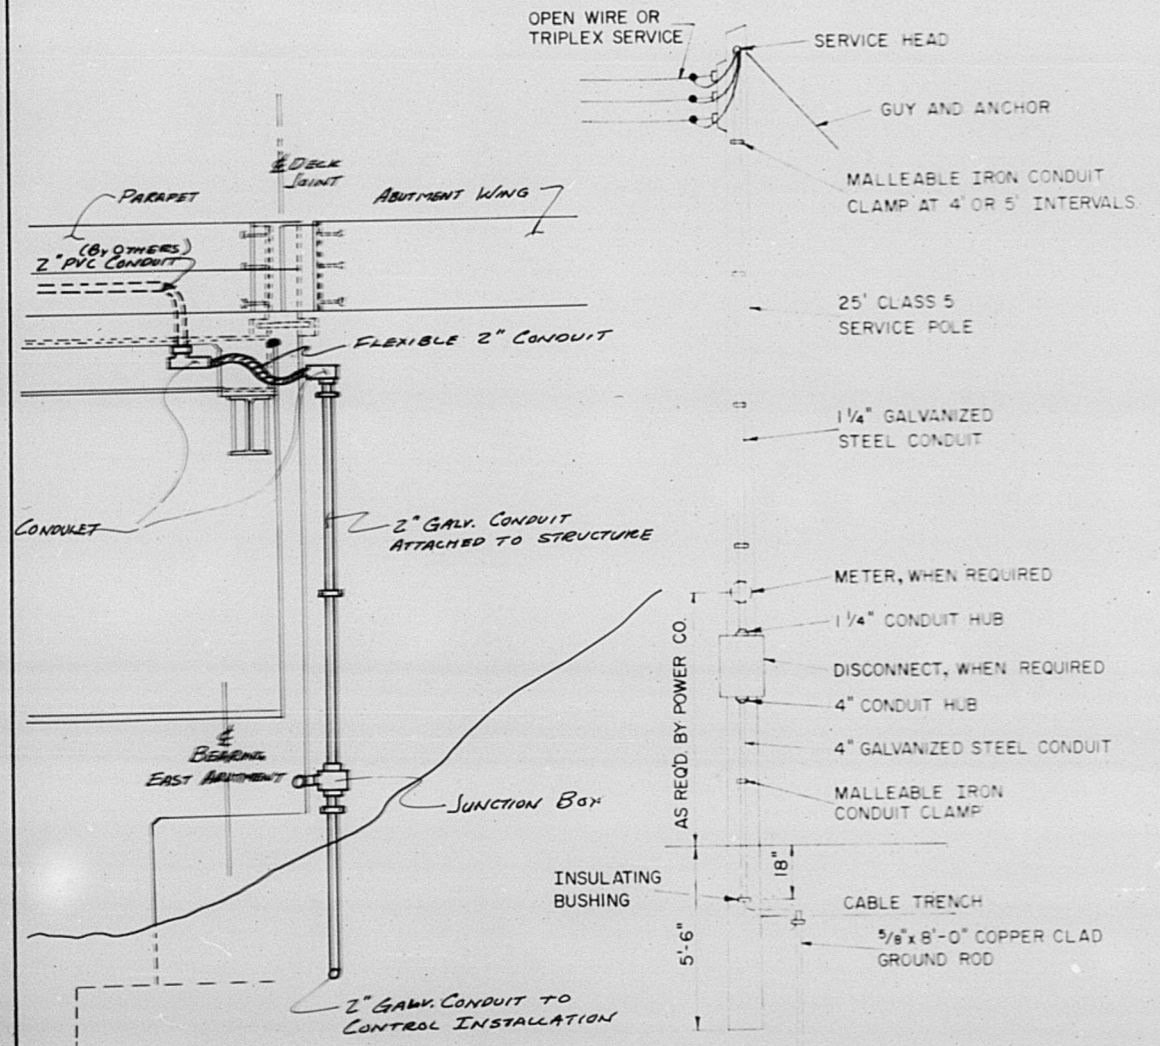 OPEN WIRE OR
TRIPLEX SERVICE
SERVICE HEAD
GUY AND ANCHOR
MALLEABLE IRON CONDUIT
CLAMP AT 4' OR 5' INTERVALS
25' CLASS 5
SERVICE POLE
1 1/4" GALVANIZED
STEEL CONDUIT
METER, WHEN REQUIRED
1 1/4" CONDUIT HUB
DISCONNECT, WHEN REQUIRED
4" CONDUIT HUB
4" GALVANIZED STEEL CONDUIT
MALLEABLE IRON
CONDUIT CLAMP
AS REQ'D. BY POWER CO.
18"
INSULATING
BUSHING
CABLE TRENCH
5/8" x 8'-0" COPPER CLAD
GROUND ROD
5'-6"
℄ DECK
JOINT
PARAPET
ABUTMENT WING
(BY OTHERS)
2" PVC CONDUIT
FLEXIBLE 2" CONDUIT
CONDULET
2" GALV. CONDUIT
ATTACHED TO STRUCTURE
℄
BEARING
EAST ABUTMENT
JUNCTION BOX
2" GALV. CONDUIT TO
CONTROL INSTALLATION